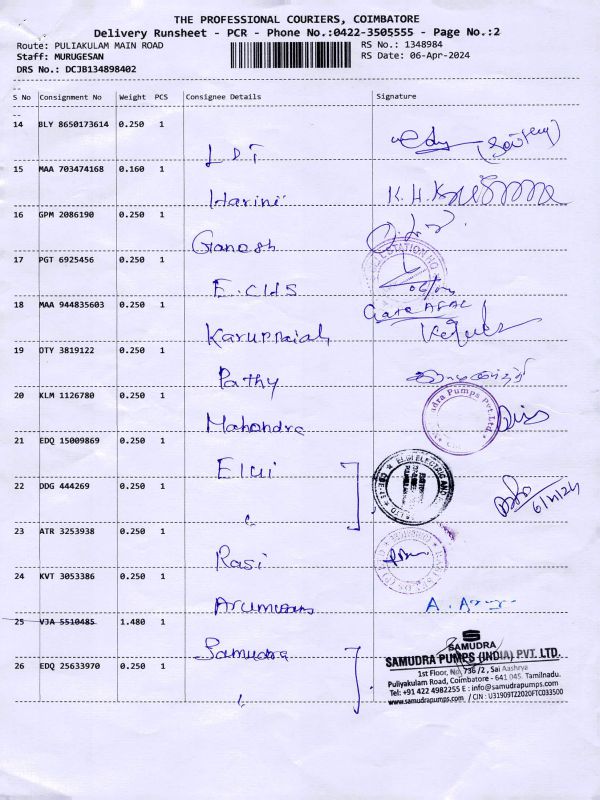 THE PROFESSIONAL COURIERS, COIMBATORE
Delivery Runsheet - PCR - Phone No.:0422-3505555 - Page No.:2
Route: PULIAKULAM MAIN ROAD
RS No.: 1348984
Staff: MURUGESAN
RS Date: 06-Apr-2024
DRS No.: DCJB134898402
S No Consignment No Weight PCS Consignee Details Signature
14 BLY 8650173614 0.250 1
LDT
15 MAA 703474168 0.160 1
Harini
16 GPM 2086190 0.250 1
Ganesh
17 PGT 6925456 0.250 1
E.CHS
18 MAA 944835603 0.250 1
Karuppaiah
19 DTY 3819122 0.250 1
Pathy
20 KLM 1126780 0.250 1
Mahendra
21 EDQ 15009869 0.250 1
Elgi
22 DDG 444269 0.250 1
23 ATR 3253938 0.250 1
Rasi
24 KVT 3053386 0.250 1
25 VJA 5510485 1.480 1
Samudra
26 EDQ 25633970 0.250 1
SAMUDRA
SAMUDRA PUMPS (INDIA) PVT. LTD.
1st Floor, No. 736 /2, Sai Aashrya
Puliyakulam Road, Coimbatore - 641 045. Tamilnadu.
Tel: +91 422 4982255 E : info@samudrapumps.com
www.samudrapumps.com / CIN : U31909TZ2020FTC033500